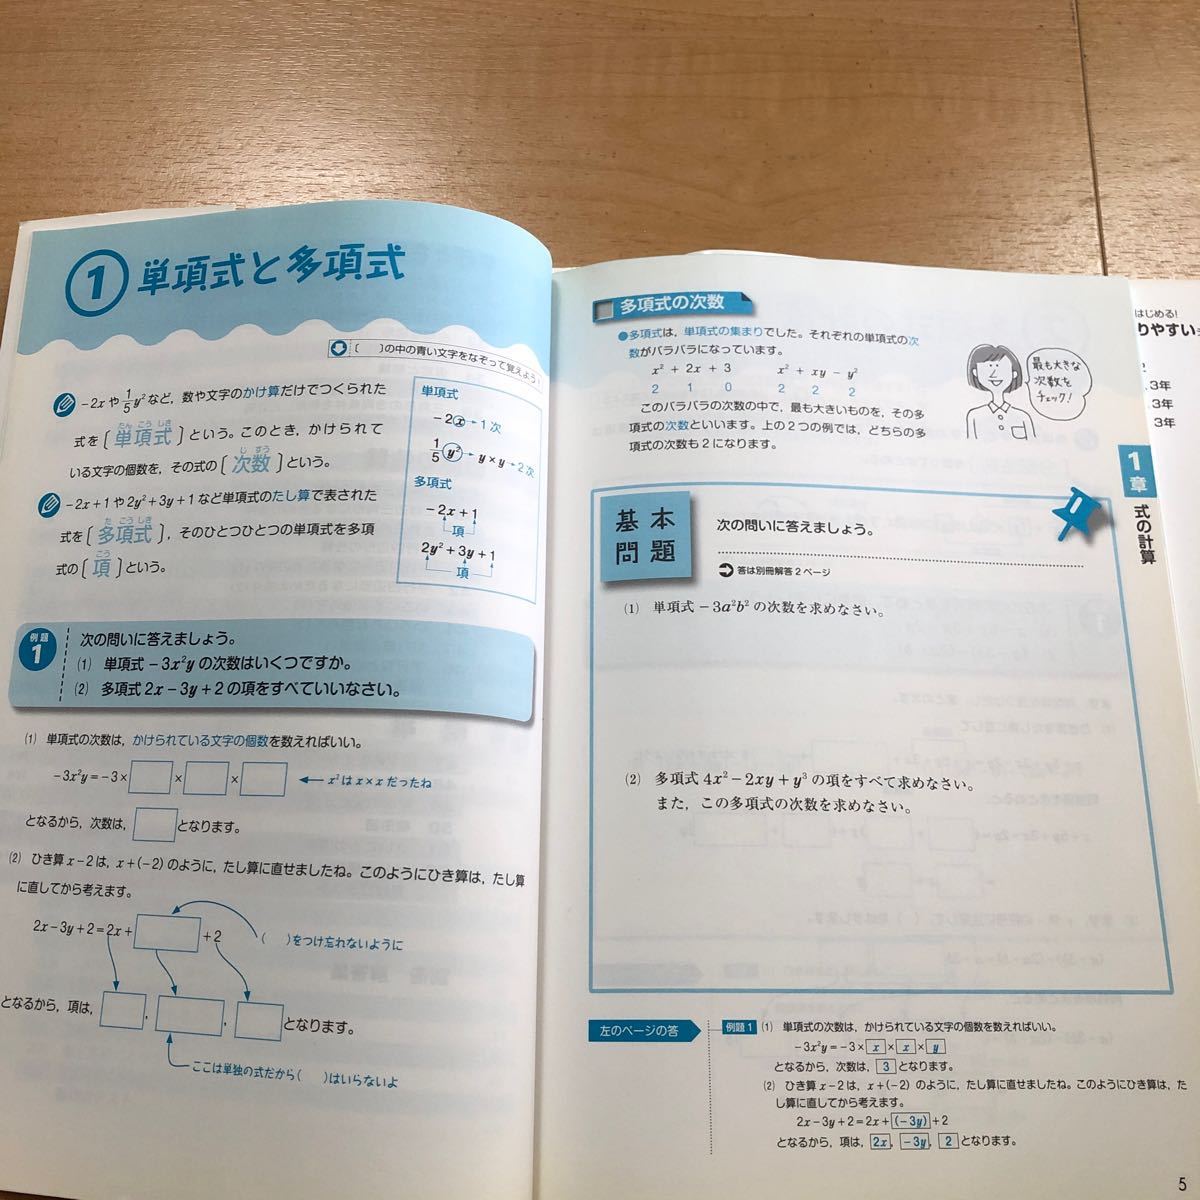 ① 単項式と多項式
〔　〕の中の青い文字をなぞって覚えよう!
-2xや1/5y²など，数や文字のかけ算だけでつくられた
たんこうしき
式を〔単項式〕という。このとき，かけられて
じすう
いる文字の個数を，その式の〔次数〕という。
-2x+1や2y²+3y+1など単項式のたし算で表された
たこうしき
式を〔多項式〕，そのひとつひとつの単項式を多項
こう
式の〔項〕という。
単項式
-2x→1次
1/5y²→y×y→2次
多項式
-2x+1
項
2y²+3y+1
項
例題
1
次の問いに答えましょう。
(1) 単項式-3x²yの次数はいくつですか。
(2) 多項式2x-3y+2の項をすべていいなさい。
(1) 単項式の次数は，かけられている文字の個数を数えればいい。
-3x²y=-3×□×□×□ ←x²はx×xだったね
となるから，次数は，□となります。
(2) ひき算x-2は，x+(-2)のように，たし算に直せましたね。このようにひき算は，たし算
に直してから考えます。
2x-3y+2=2x+□+2
(　)をつけ忘れないように
となるから，項は，□，□，□となります。
ここは単独の式だから(　)はいらないよ
多項式の次数
●多項式は，単項式の集まりでした。それぞれの単項式の次
数がバラバラになっています。
x² + 2x + 3　x² + xy - y²
2 1 0　2 2 2
このバラバラの次数の中で，最も大きいものを，その多
項式の次数といいます。上の2つの例では，どちらの多
項式の次数も2になります。
最も大きな
次数を
チェック!
基本
問題
次の問いに答えましょう。
答は別冊解答2ページ
(1) 単項式-3a²b²の次数を求めなさい。
(2) 多項式4x²-2xy+y³の項をすべて求めなさい。
また，この多項式の次数を求めなさい。
左のページの答
例題1
(1) 単項式の次数は，かけられている文字の個数を数えればいい。
-3x²y=-3×x×x×y
となるから，次数は，3となります。
(2) ひき算x-2は，x+(-2)のように，たし算に直せましたね。このようにひき算は，た
し算に直してから考えます。
2x-3y+2=2x+(-3y)+2
となるから，項は，2x，-3y，2となります。
1
章
式の計算
5
はじめる!
りやすい
3年
3年
3年